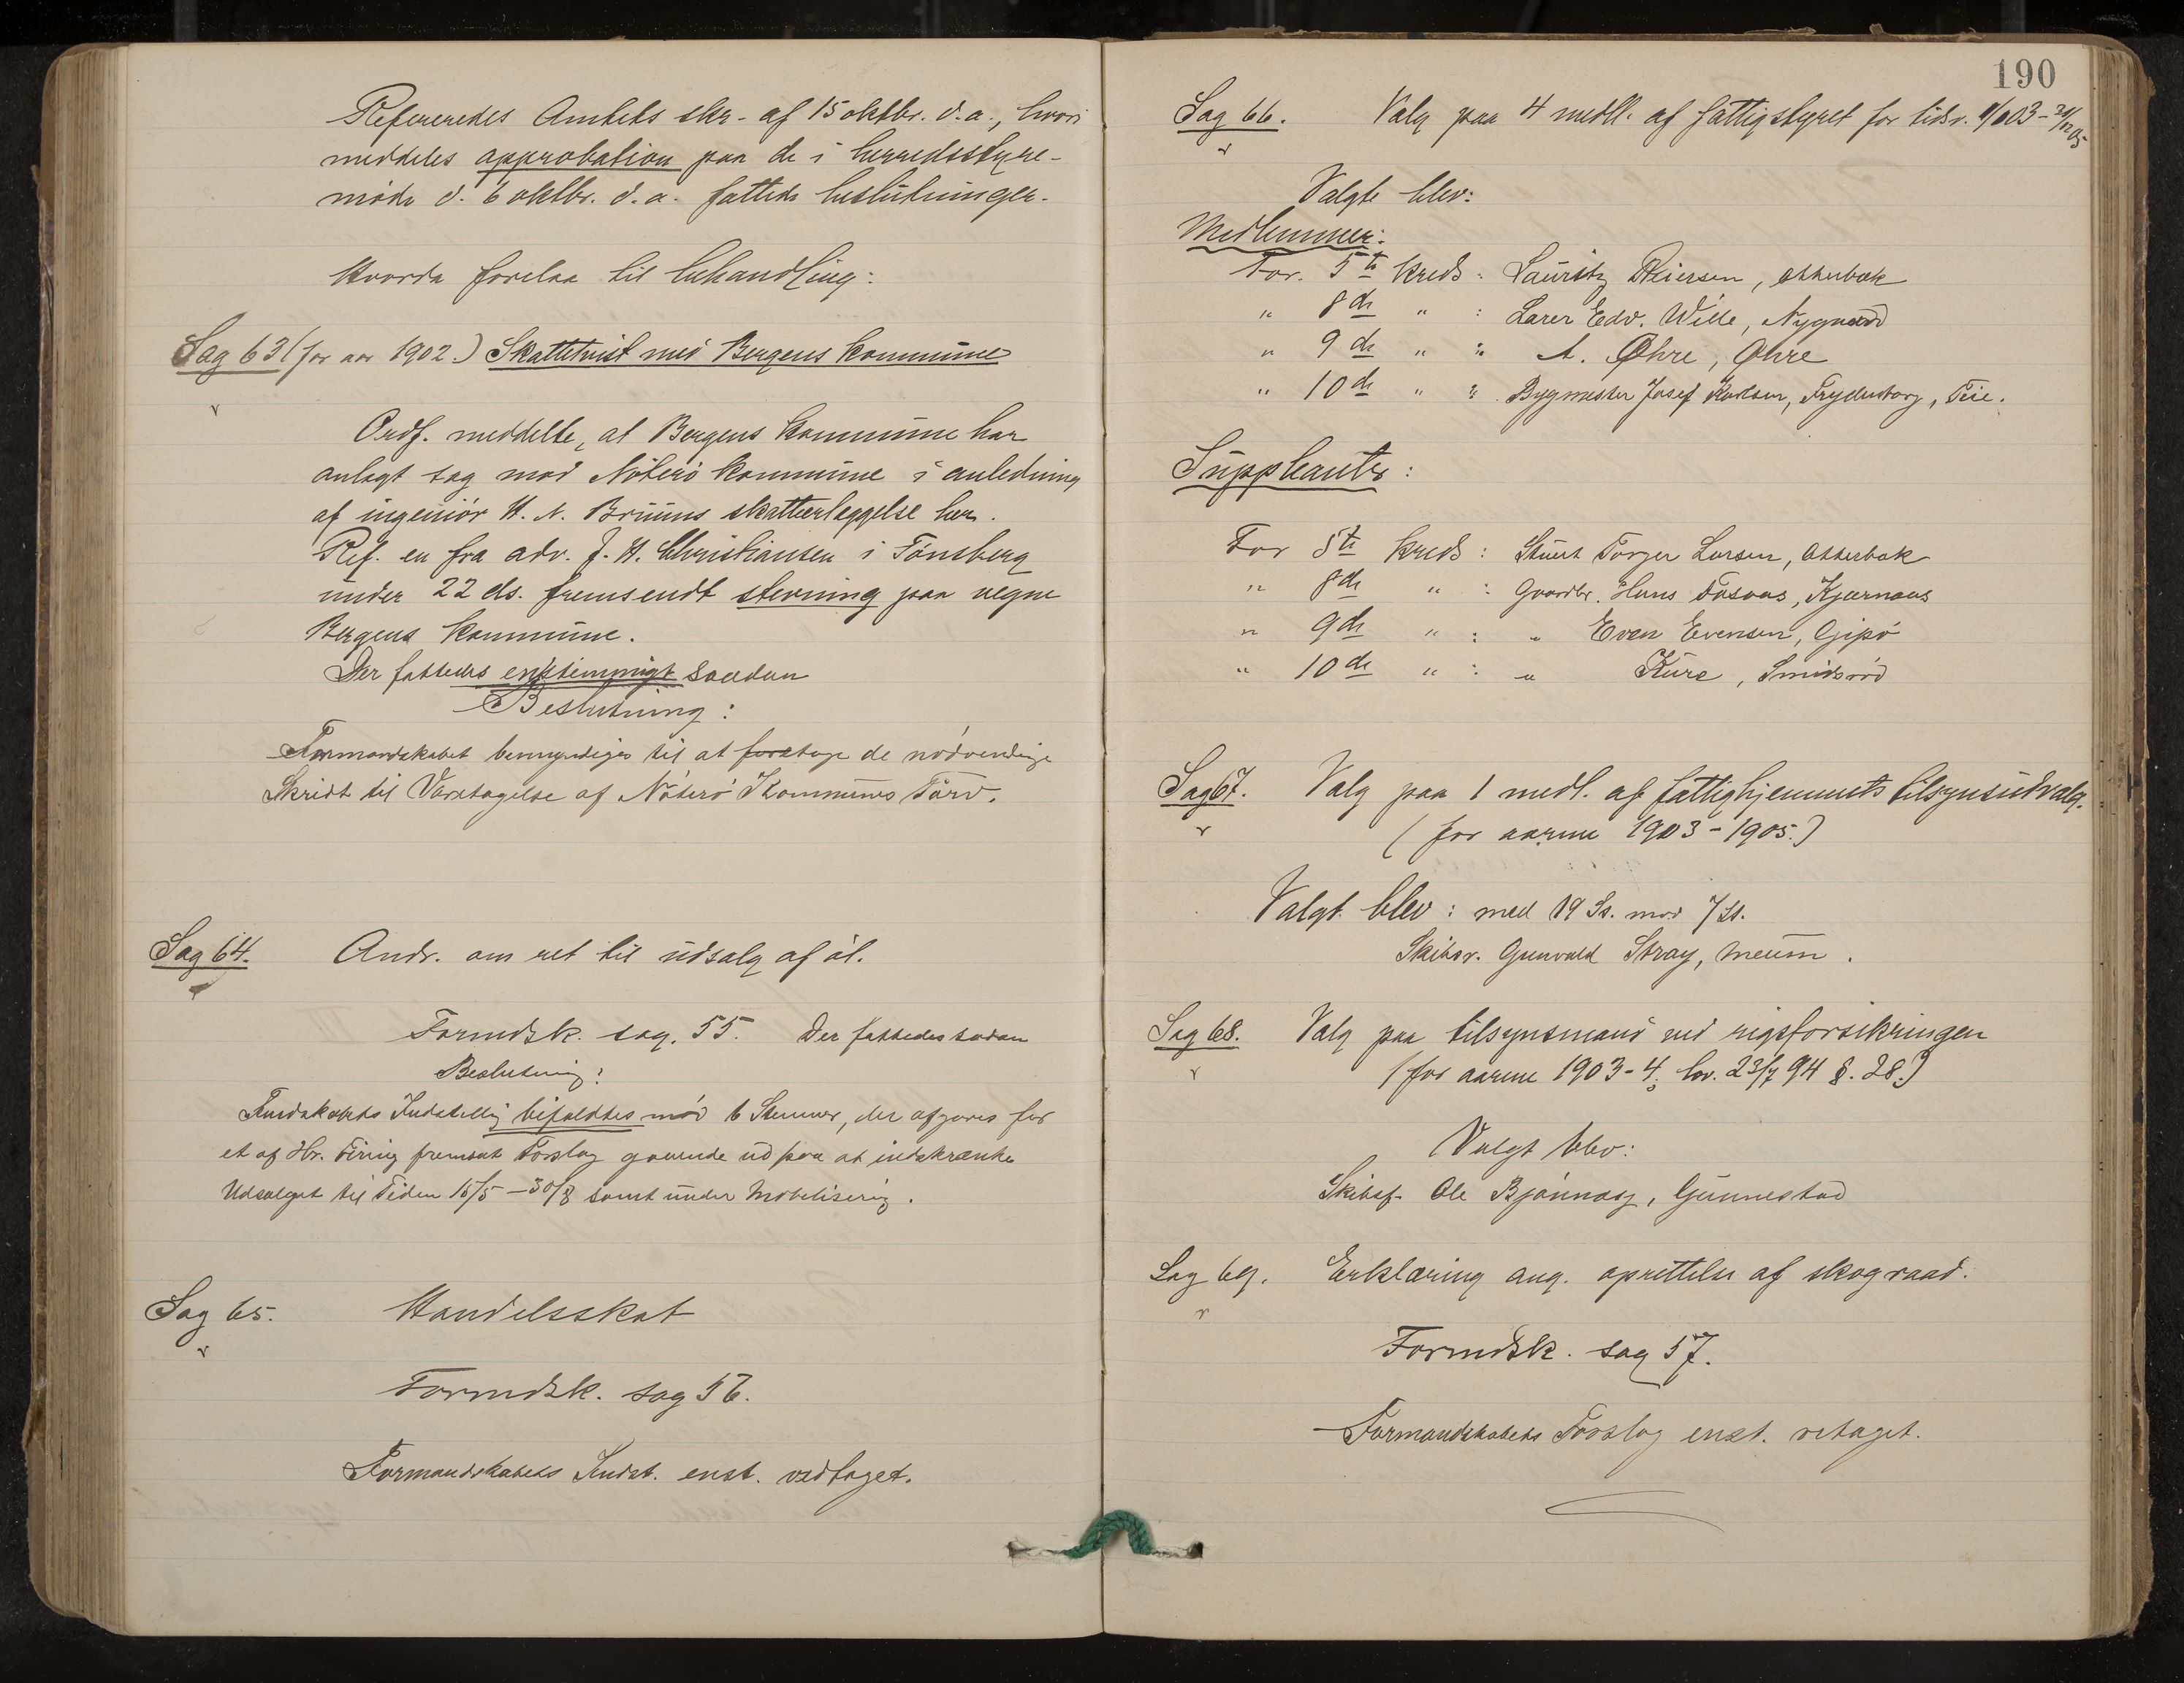 Refereredes Amtets skr. af 15 oktbr. d.a., hvori
meddeles approbation paa de i herredsstyre-
møde d. 6 oktbr. d.a. fattede beslutninger.
Hvorda forelaa til behandling:
Sag 63 (for aar 1902.) Skattetvist med Bergens kommune
Ordf. meddelte, at Bergens kommune har
anlagt sag mod Nøterø kommune i anledning
af ingeniør H. N. Bruuns skatteerlæggelse her.
Ref. en fra adv. J. H. Christiansen i Tønsberg
under 22 ds. fremsendt stevning paa vegne
Bergens kommune.
Der fattedes enstemmigt saadan
Beslutning:
Formandskabet bemyndiges til at foretage de nødvendige
Skridt til Varetagelse af Nøterø Kommunes Tarv.
Sag 64. Andr. om ret til udsalg af øl.
Formdsk. sag. 55. Der fattedes sadan
Beslutning:
Indstilling bifaldtes mod 6 Stemmer, der afgaves for
et af Hr. fremsat Forslag gaaende ud paa at indskrænke
Udsalget til Tiden 15/5 - 30/8 samt under Mobilisering.
Sag 65. Handelsskat
Formdsk. sag 56.
Formandskabets Indst. enst. vedtaget.
190
Sag 66. Valg paa 4 medl. af fattigstyret for tidsr. 03 - 31/12 05
Valgte blev:
Medlemmer:
For 5te kreds: Lauritz Reiersen, Otterbæk
" 8de " : Lærer Edv. Wille, Nygaard
" 9de " : A. Øhre, Øhre
" 10de " : Bygmester Josef Karlsen, Frydenborg, Teie.
Suppleanter:
For 5te kreds: Torger Larsen, Otterbæk
" 8de " : Gaardbr. Hans Fosaas, Kjærnaas
" 9de " : " Even Evensen, Gipø
" 10de " : " Kure, Smidsrød
Sag 67. Valg paa 1 medl. af fattighjemmets tilsynsudvalg.
(for aarene 1903 - 1905.)
Valgt blev: med 19 St. mod 7 St.
Skibsr. Gunvald Stray, Meum.
Sag 68. Valg paa tilsynsmand ved rigsforsikringen
(for aarene 1903-4, lov. 23/7 94 §. 28.)
Valgt blev:
Skibsf. Ole Bjønnæs, Gunnestad
Sag 69. Erklæring ang. oprettelse af skograad.
Formdsk. sag 57.
Formandskabets Forslag enst. vetaget.